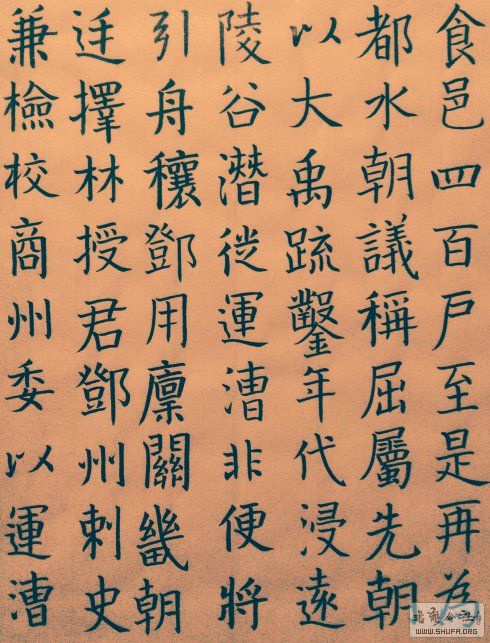 食邑四百戶至是再為
都水朝議稱屈屬先朝
以大禹疏鑿年代浸遠
陵谷潛徙運漕非便將
引舟穰鄧用廩關畿朝
廷擇林授君鄧州刺史
兼檢校商州委以運漕
WWW.SHUFA.ORG